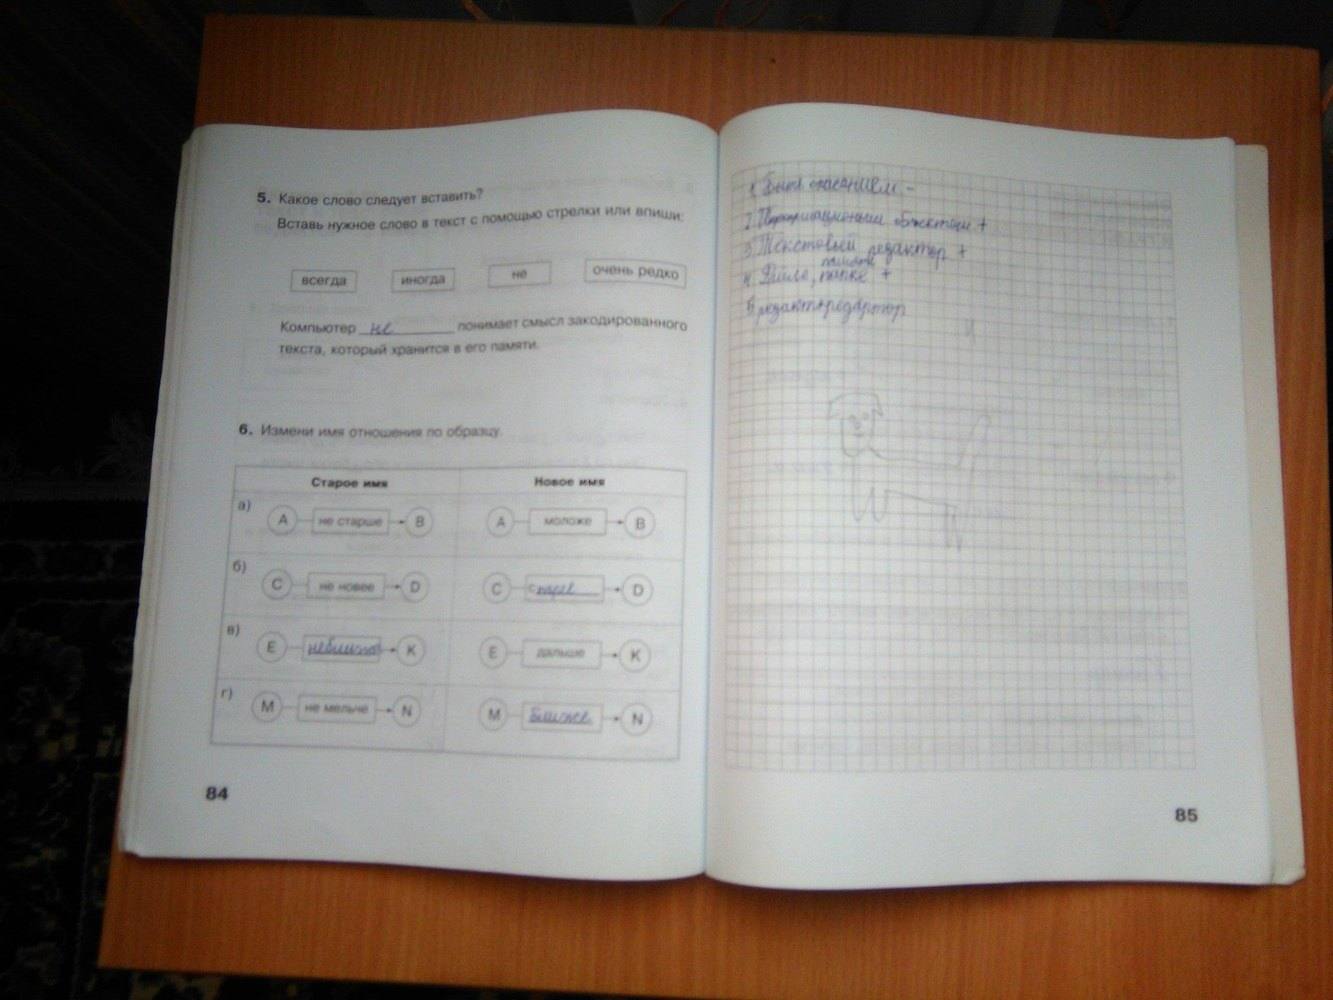 5. Какое слово следует вставить?
Вставь нужное слово в текст с помощью стрелки или впиши:
всегда иногда не очень редко
Компьютер не понимает смысл закодированного
текста, который хранится в его памяти.
6. Измени имя отношения по образцу.
Старое имя Новое имя
а) A не старше B A моложе B
б) C не новее D C старее D
в) E неближе K E дальше K
г) M не мельче N M Ближе N
84
1. Быть описанием -
2. объектом +
3. Текстовый редактор +
памяти
4. Файле, папке +
5.
85